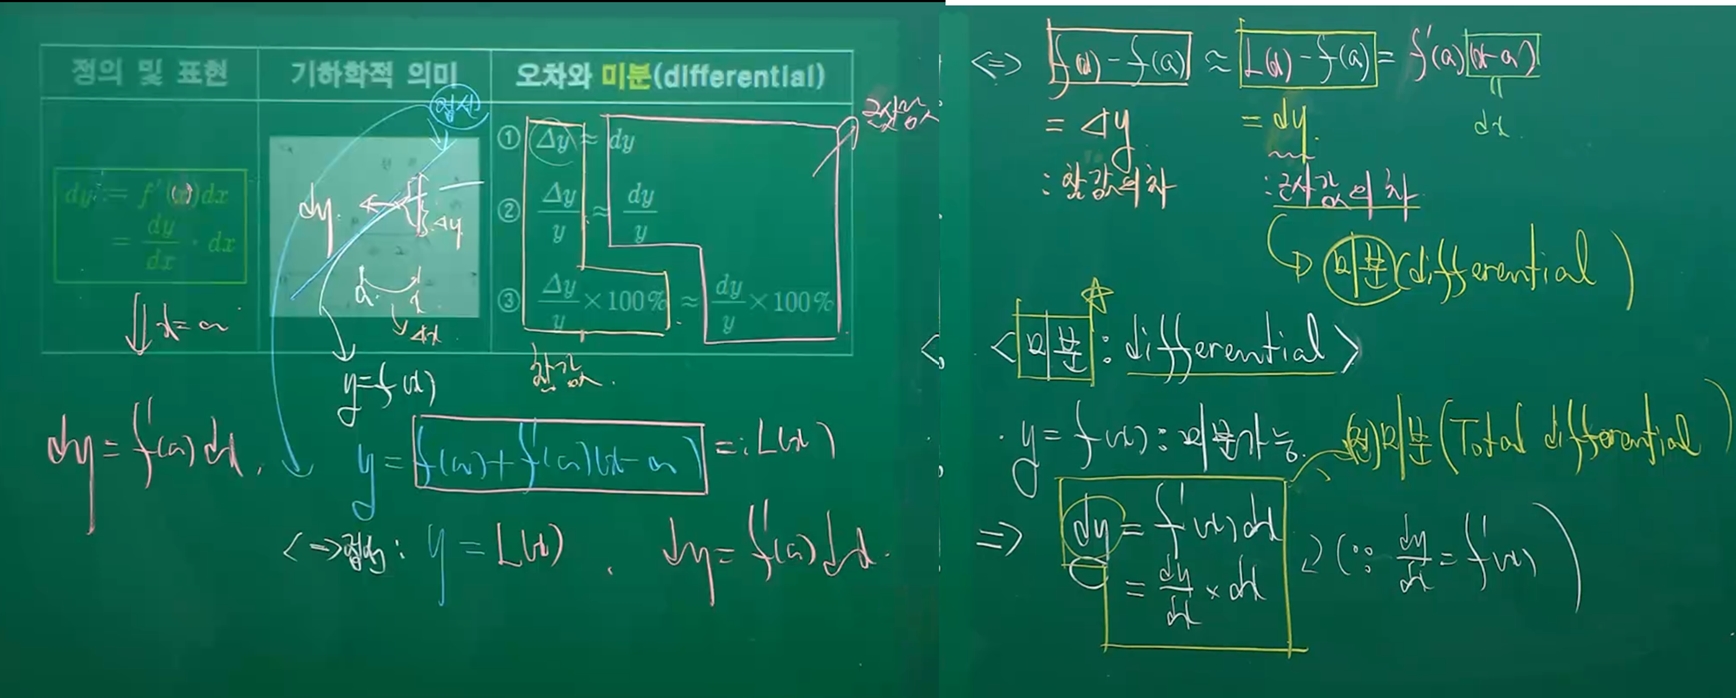 정의 및 표현
기하학적 의미
오차와 미분(differential)
접선
dy := f'(x)dx
= dy/dx · dx
dy
Δy
Δx
① Δy ≈ dy
② Δy/y ≈ dy/y
③ Δy/y × 100% ≈ dy/y × 100%
근삿값
참값.
⇓ x=a
y=f(x)
dy = f'(a)dx.
y = f(a)+f'(a)(x-a) =: L(x)
<=> 접선: y = L(x)
dy = f'(a)dx.
<=> f(x) - f(a) ≈ L(x) - f(a) = f'(a)(x-a)
= Δy
= dy.
dx.
: 참값의 차
: 근삿값의 차
→ 미분(differential)
<미분: differential>
· y = f(x) : 미분가능.
(전)미분(Total differential)
=> dy = f'(x)dx
= dy/dx × dx
(∵ dy/dx = f'(x))